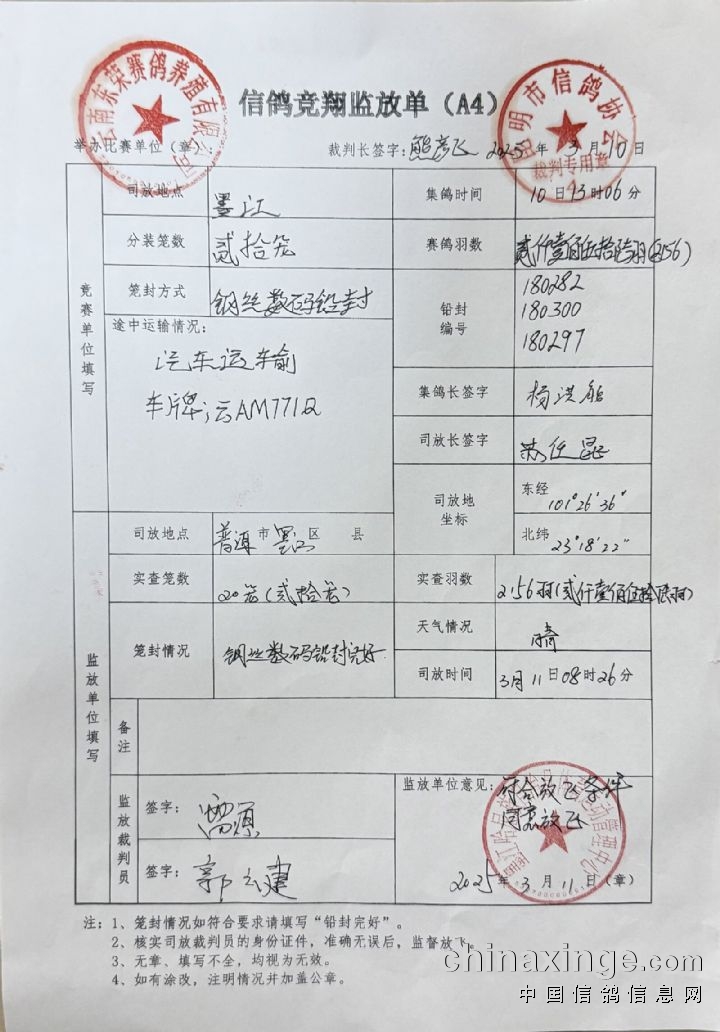 信鸽竞翔监放单（A4）
举办比赛单位（章）： 裁判长签字： 2025 年 3 月 10 日
云南东荣赛鸽养殖有限公司
昆明市信鸽协会
裁判专用章
竞赛单位填写
司放地点 墨江 集鸽时间 10 日 13 时 06 分
分装笼数 贰拾笼 赛鸽羽数 贰仟壹佰伍拾陆羽(2156)
笼封方式 钢丝数码铅封 铅封编号 180282
180300
180297
途中运输情况：
汽车运输
车牌:云AM771Q
集鸽长签字
司放长签字
司放地坐标 东经 101°26′36″
北纬 23°18′22″
监放单位填写
司放地点 普洱 市 墨江 区 县
实查笼数 20笼(贰拾笼) 实查羽数 2156羽(贰仟壹佰伍拾陆羽)
笼封情况 钢丝数码铅封完好 天气情况 晴
司放时间 3月 11 日 08 时 26 分
备注
监放裁判员
签字：
签字：
监放单位意见： 符合放飞条件
同意放飞
2025 年 3 月 11 日（章）
注：1、笼封情况如符合要求请填写“铅封完好”。
2、核实司放裁判员的身份证件，准确无误后，监督放飞。
3、无章、填写不全，均视为无效。
4、如有涂改，注明情况并加盖公章。
chinaxinge.com
中国信鸽信息网